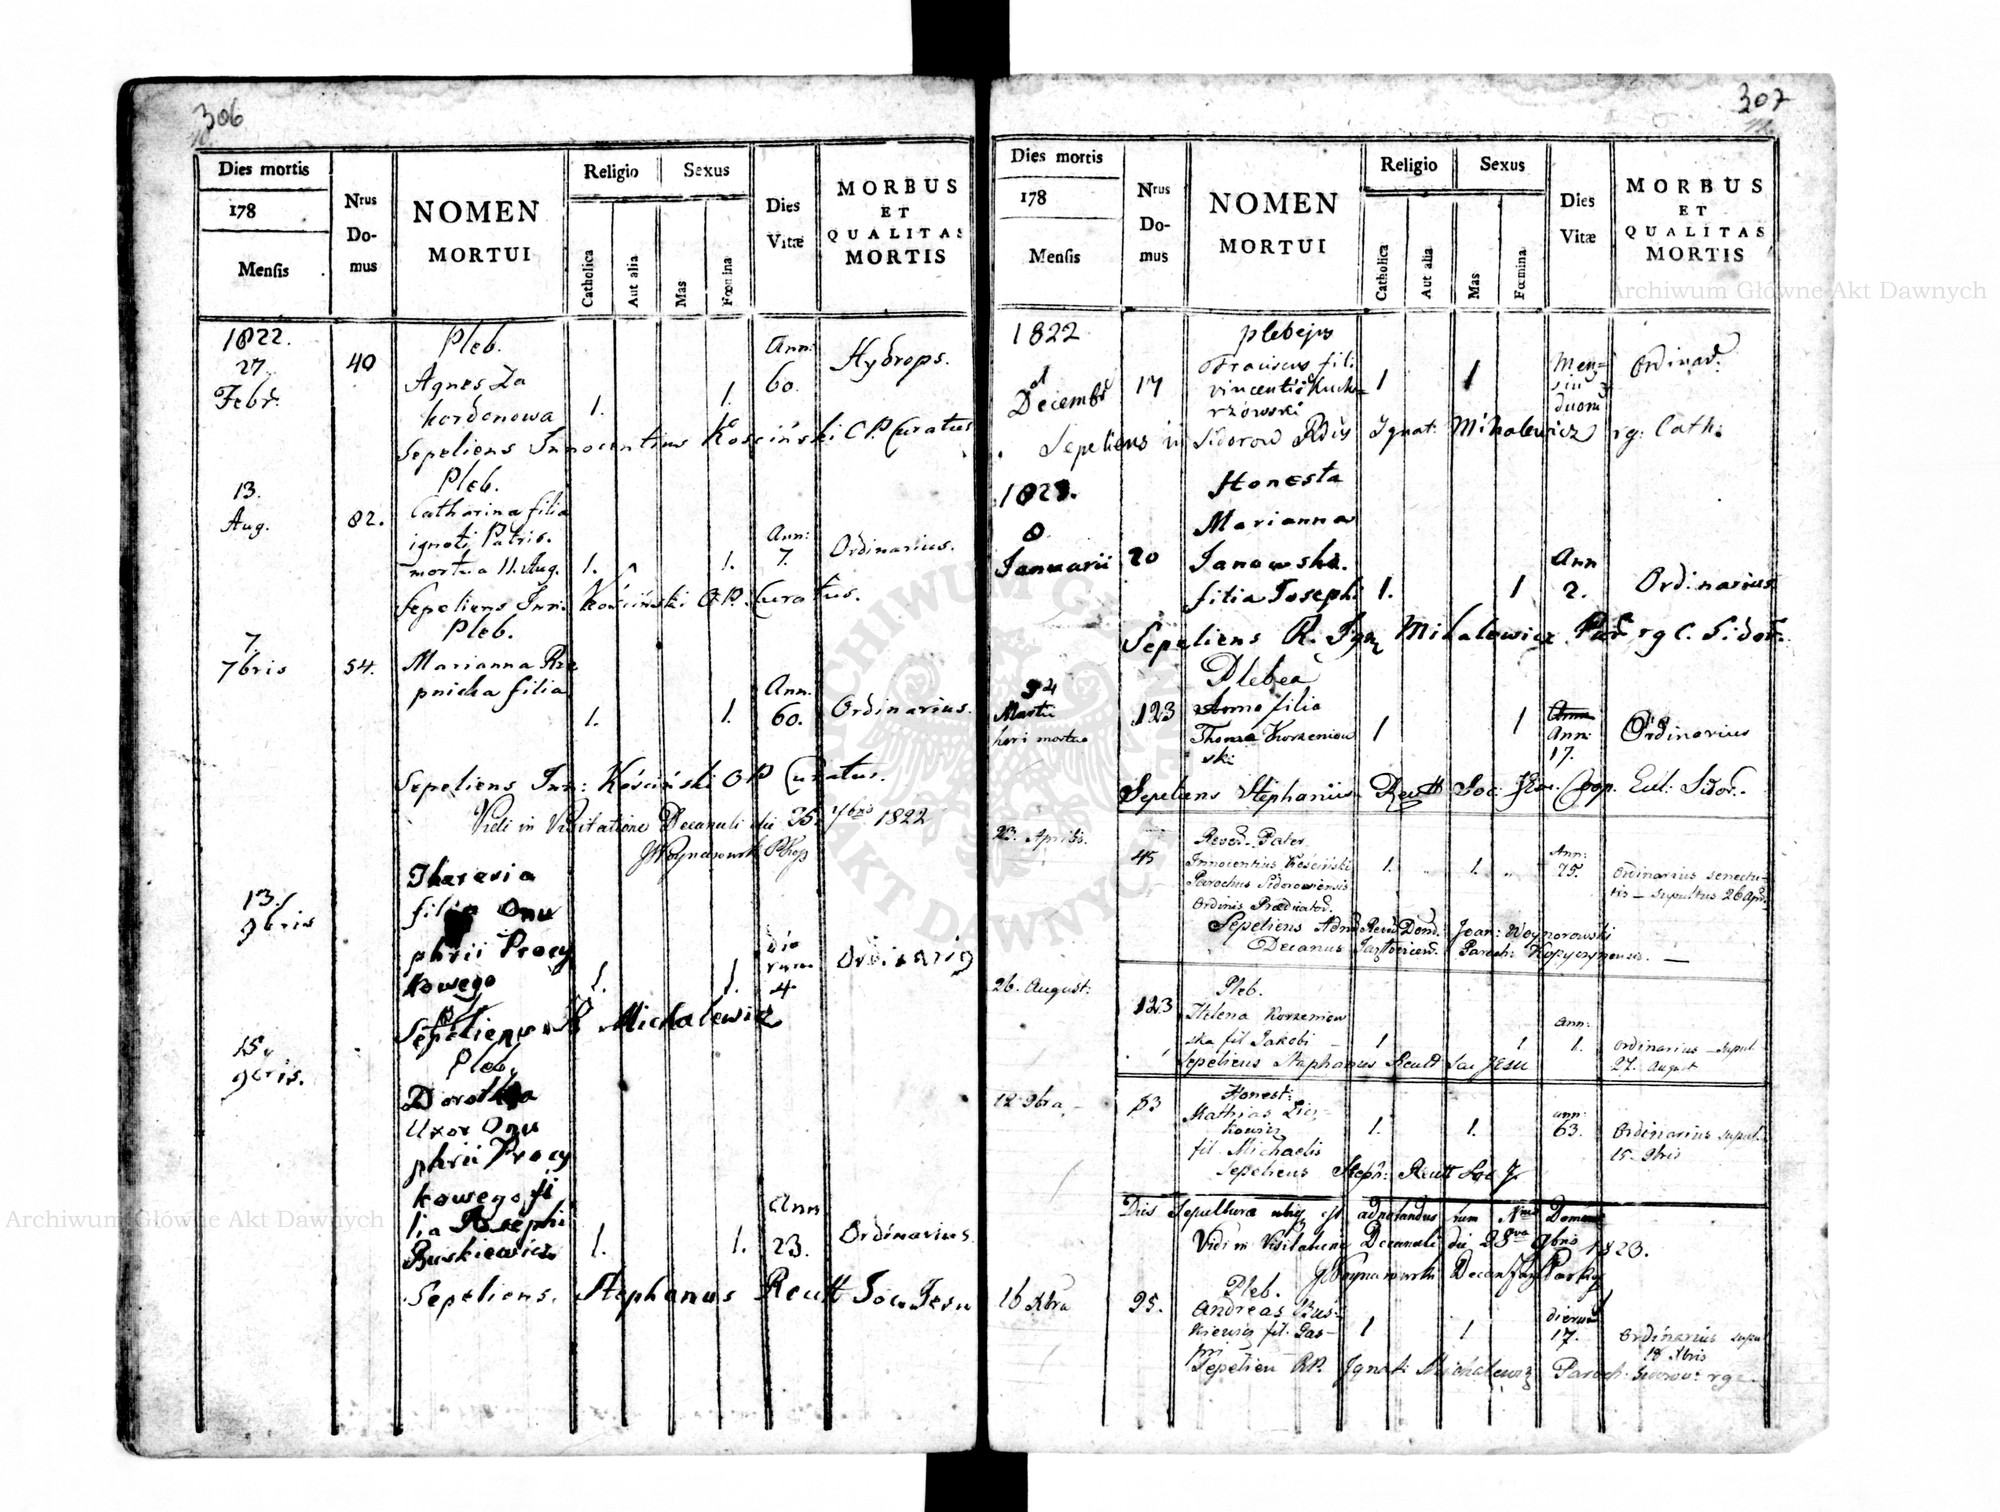 306
Dies mortis
178
Mensis
Nrus Do-mus
NOMEN MORTUI
Religio
Sexus
Catholica
Aut alia
Mas
Fœmina
Dies Vitæ
MORBUS ET QUALITAS MORTIS
1822.
27
Febr.
40
Pleb.
Agnes Za
kordonowa
1.
1.
Ann:
60.
Hydrops.
Sepeliens Innocentius Kosciński O.P. Curatus
13.
Aug.
82.
Pleb.
Catharina filia
ignoti Patris.
mortua 11. Aug.
1.
1.
Ann:
7.
Ordinarius.
Sepeliens Inn: Kościński O.P. Curatus.
7.
7bris
54.
Pleb.
Marianna Rze
pnicka filia
1.
1.
Ann.
60.
Ordinarius.
Sepeliens Inn: Kościński O P Curatus.
Vidi in Visitatione Decanali die 7bris 1822
13.
9bris
Theresia
filia Onu
phrii Procy
kowego
1.
1.
die
rum
4
Ordinarig
Sepeliens R Michalewicz
15.
9bris.
Pleb.
Dorothea
Uxor Onu
phrii Procy
kowego fi
lia Josephi
Buskiewicz
1.
1.
Ann
23.
Ordinarius.
Sepeliens. Stephanus Reutt Soc. Jesu
307
Dies mortis
178
Mensis
Nrus Do-mus
NOMEN MORTUI
Religio
Sexus
Catholica
Aut alia
Mas
Fœmina
Dies Vitæ
MORBUS ET QUALITAS MORTIS
1822
Decembr
17
plebejus
fili
vincentii Kuch=
rzówski
1
1
Men=
siu
duoru
Ordinar.
Sepeliens in Sidorow Rdus Ignat: Mihalewicz rg: Cath:
1823.
8.
Januarii
20
Honesta
Marianna
Janowska.
filia Josephi
1.
1
Ann
2.
Ordinarius
Sepeliens R. Ign Mihalewicz Par rg C. Sidor.
24
Martii
heri mortua
123
Plebea
Anna filia
Thoma Korzeniow
ski
1
1
Ann:
17.
Ordinarius
Sepeliens Stephanus Reutt Soc: Jesu Coop. Eccl: Sidor.
23. Aprilis.
45
Revere. Pater
Innocentius Kościński
Parochus Sidoroviensis
Ordinis Prædicator.
1.
1.
Ann:
75.
Ordinarius senectu-
tis – sepultus 26 Apr.
Sepeliens Joan: Woynorowski
Decanus Paroch: Kopyczynensis.
26. August:
123
Pleb.
Helena Korzeniow
ska fil Jakobi
1
1.
ann:
1.
ordinarius – sepul
27. August
Sepeliens Stephanus Reutt Soc Jesu
12 9bra
83
Honest:
Mathias
fil. Michaelis
1.
1.
ann:
63.
Ordinarius sepul.
15. 9bris
Sepeliens Steph: Reutt Soc J.
Dies Sepulturæ ubiq est adnotandus cum Nro Domus
Vidi in Visitatione Decanali die 28va 9bris 1823.
16 Xbra
95.
Pleb.
Andreas Bus-
kiewicz fil. Gas-
pri
1
1
dierum
17.
Ordinarius sepul
18 Xbris
Sepelien RR. Ignati Michalewicz Paroch. Sidorov: rgc.
Archiwum Główne Akt Dawnych
Archiwum Główne Akt Dawnych
ARCHIWUM GŁÓWNE AKT DAWNYCH